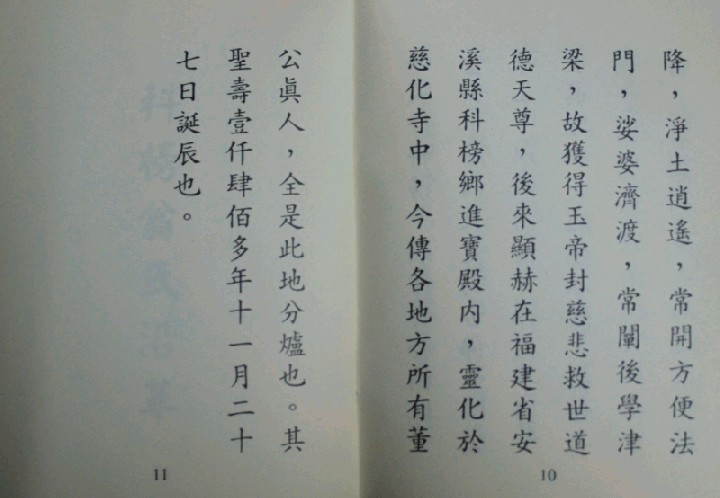 降，淨土逍遙，常開方便法
門，娑婆濟渡，常闡後學津
梁，故獲得玉帝封慈悲救世道
德天尊，後來顯赫在福建省安
溪縣科榜鄉進寶殿內，靈化於
慈化寺中，今傳各地方所有董
10
公眞人，全是此地分爐也。其
聖壽壹仟肆佰多年十一月二十
七日誕辰也。
11